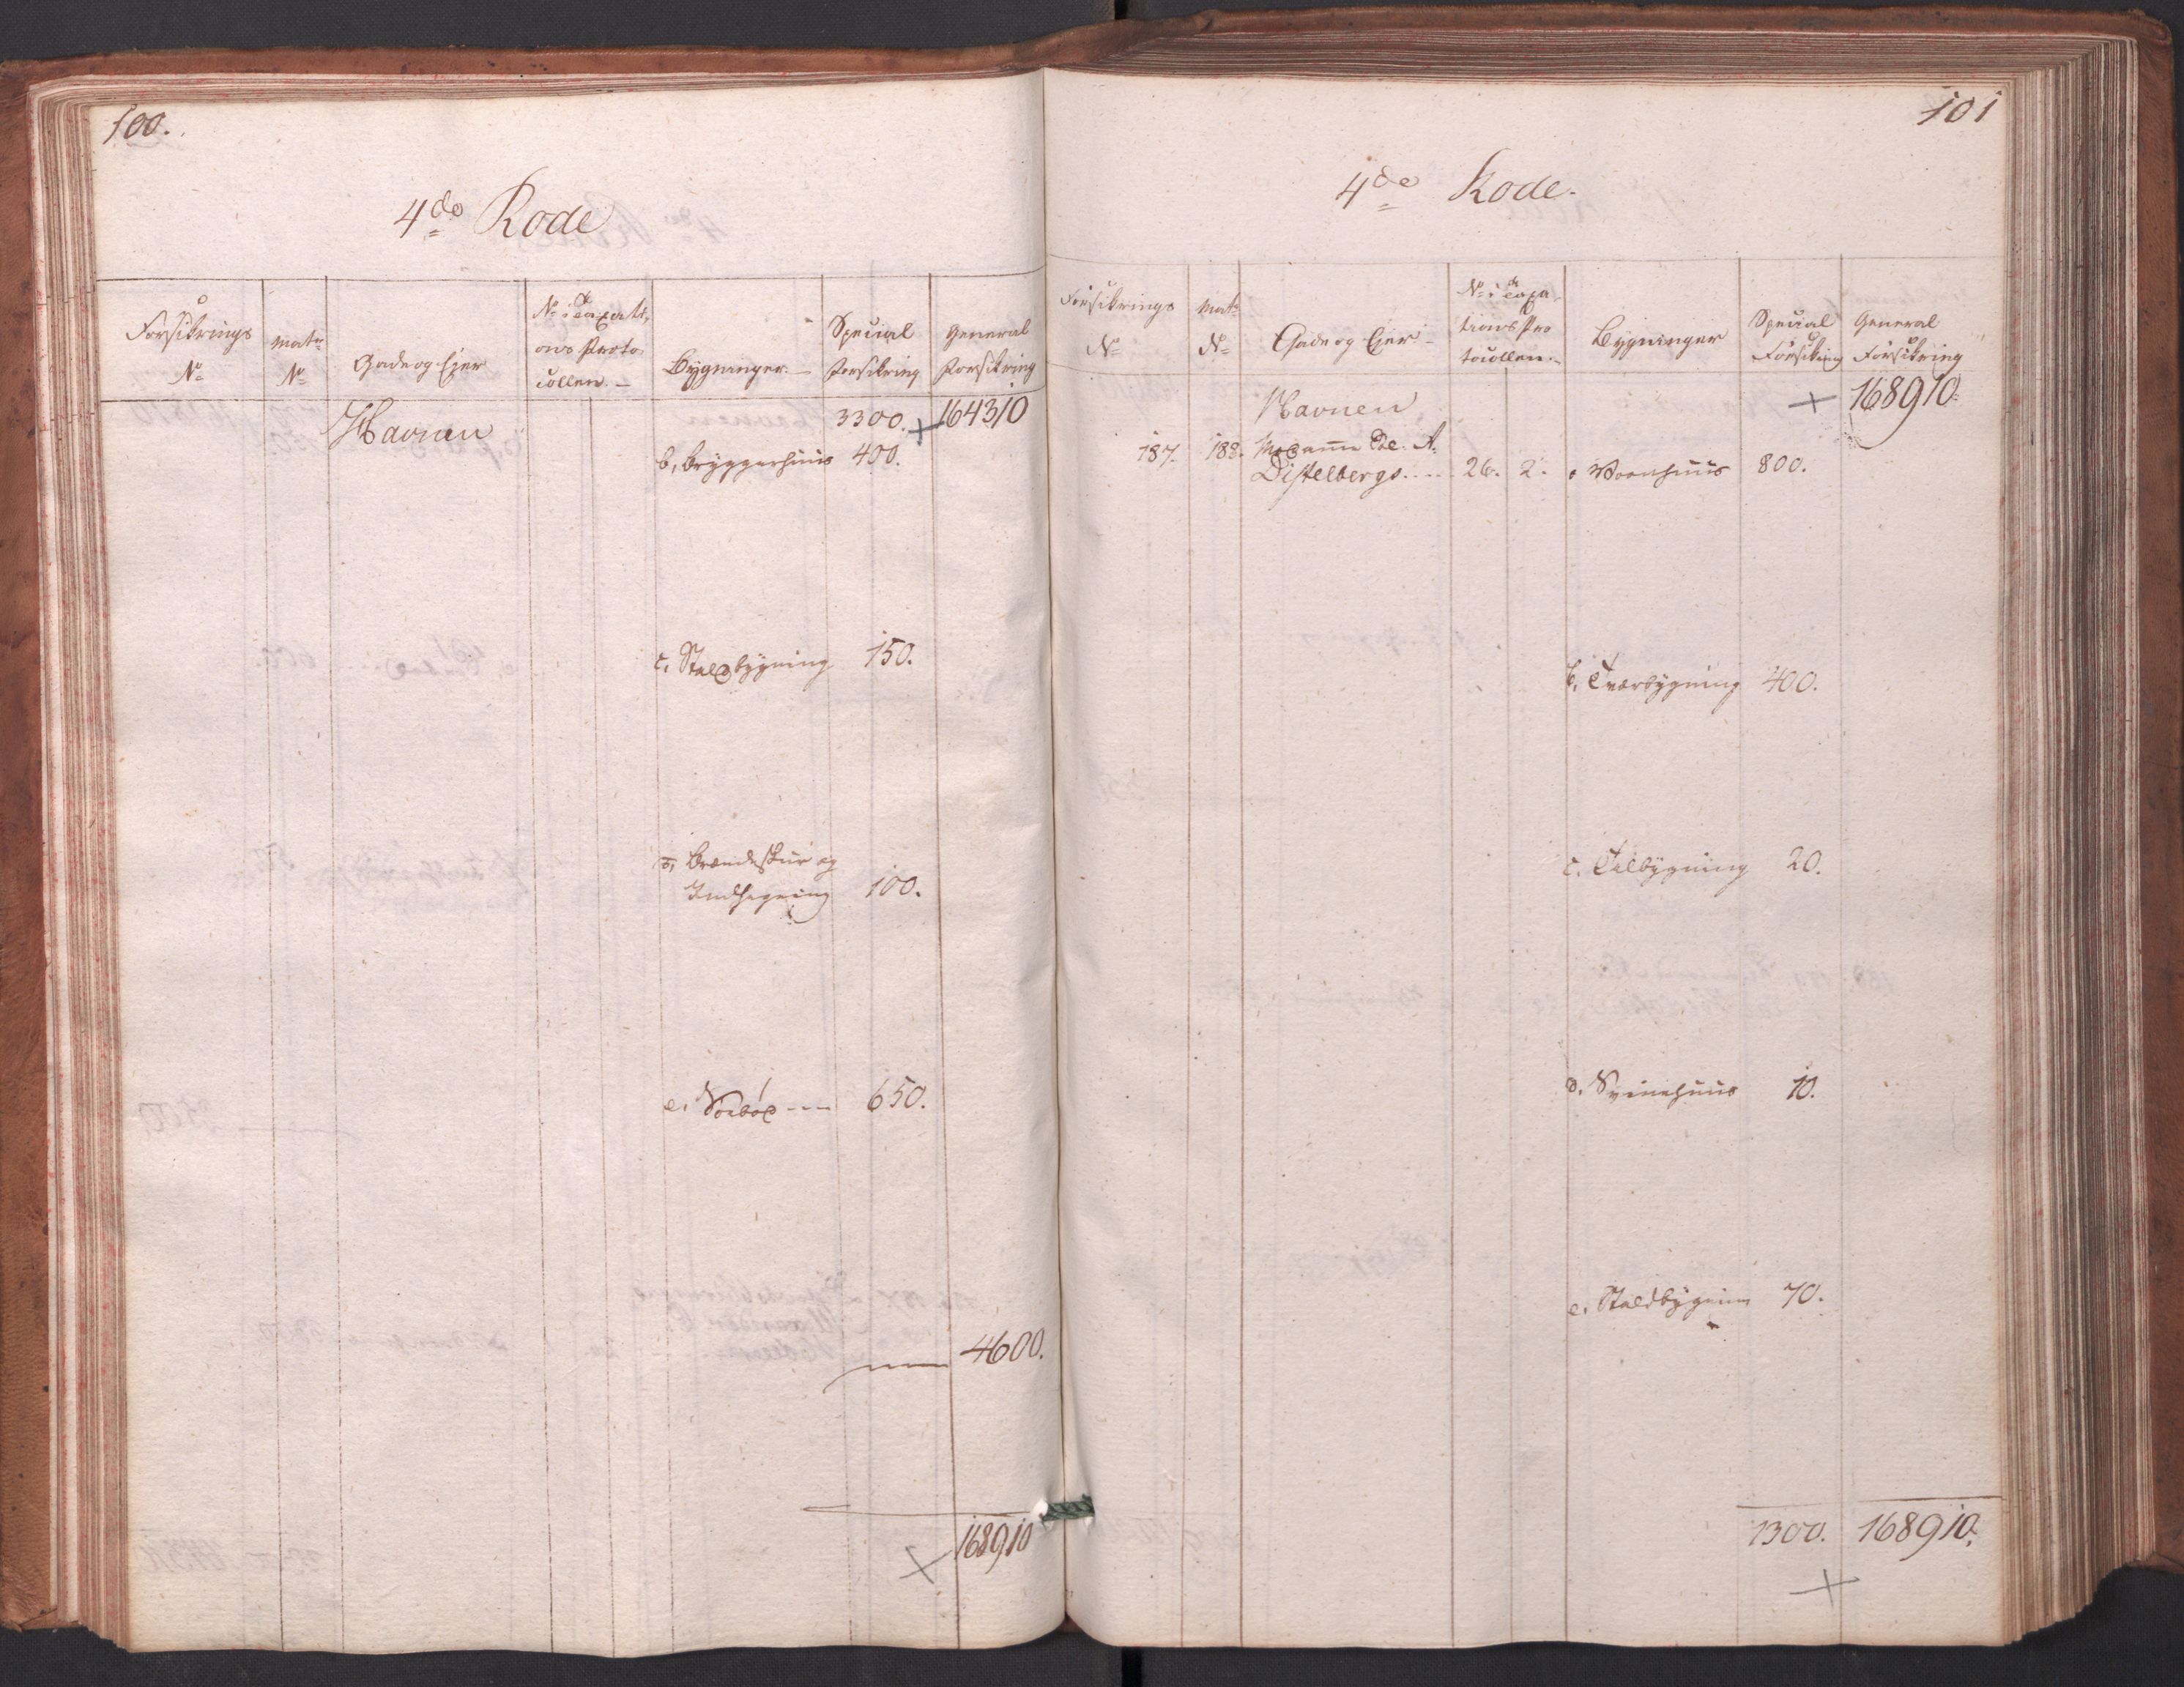 100.
4de Rode
Forsikrings
No
Matr
No
Gade og Ejer
No i Taxati,
ons Proto,
collen. —
Bygninger. —
Special
Forsikring
General
Forsikring
Havnen
3300.
+ 164310
b, Bryggerhuus 400.
c, Staldbygning 150.
d, Brændeskur og
Indhegning 100.
e, Soebod --- 650.
4600.
+ 168910
101
4de Rode.
Forsikrings
No
Matr
No
Gade og Ejer
No i Taxa,
tions Pro
tocollen. —
Bygninger
Special
Forsikring
General
Forsikring
+ 168910.
Havnen
187. 188. Madame A.
Distelbergs .... 26. 2. a Vaanhuus 800.
b, Tværbygning 400.
c. Talbygning 20.
d. Sviinehuus 10.
e, Staldbygning 70.
1300. 168910.
+